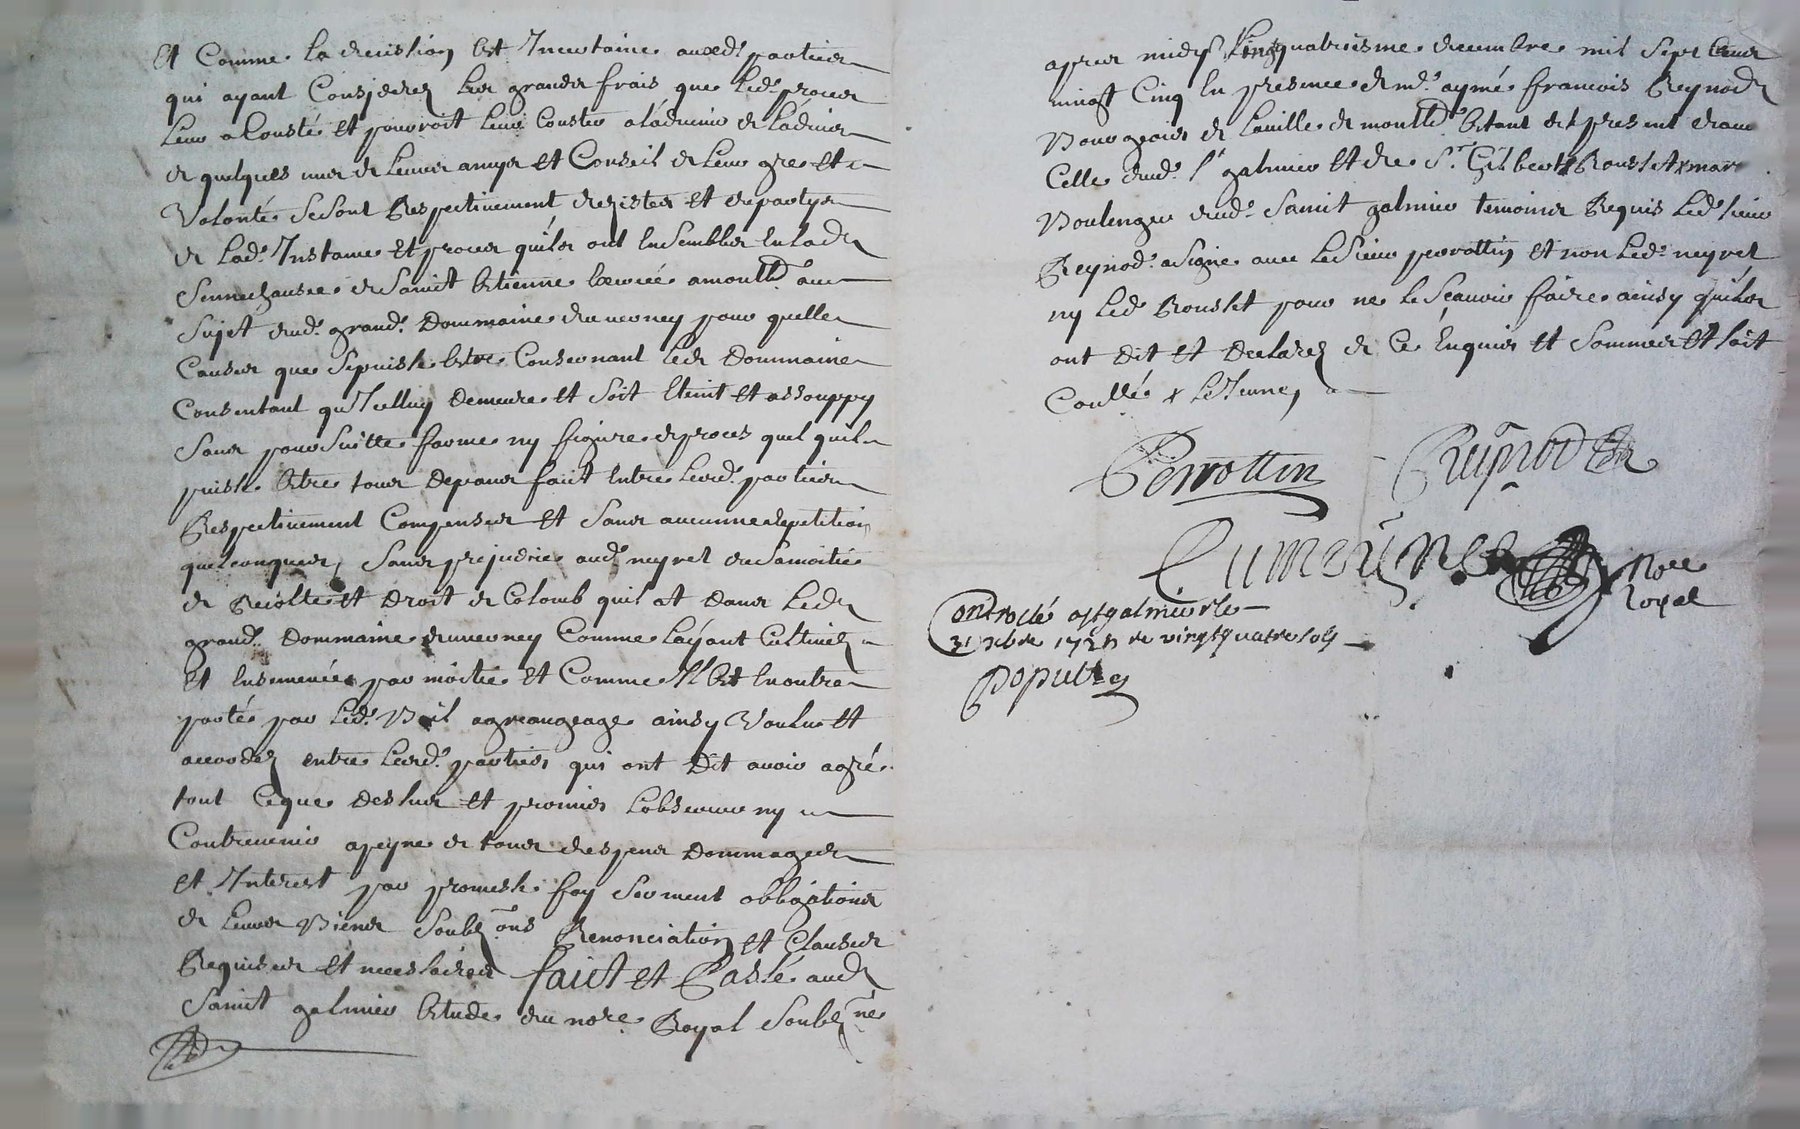 Et Comme la decission Est Incertaine auxd. parties
qui ayant Consideréz les grands frais que led. proces
leur a Cousté et pouroit leur Couster a ladvenir de ladvis
de quelques uns de leurs amys et Conseil de leur gre et
Volonté se sont Respectivement dezistes et departys
de lad. Instance et proces quils ont Ensembles En lad.
sennechaussée de Sainct Estienne au
sujet dud. grand. Dommaine du verney pour quelle
Causes que se puisse Estre Concernant led. Dommaine
Consentant qu'Icelluy demeure et soit Eteint et assouppy
sans poursuitte forme ny figure de proces quel quil
puisse Estre tous depans faict Entre lesd. parties
Respectivement Compenses et sans aucunne repetition
quelconques, sans prejudice aud. neyret de sa moitié
de Recolte et droit de Colomb quil at dans led.
grand. dommaine du verney Comme layant Cultivéz
et Ensemencé par moitié et Comme Il Est En outre
porté par led. Bail a grangeage ainsy Voulu et
accordéz entre lesd. parties, qui ont dit avoir agré
tout Ceque dessus et promis lobserver ny
Contrevenir a peyne de tous despens dommages
et Interest par promesse foy serment obligations
de leurs Biens soubz.ons Renonciation et Clauses
Requises et necessaires faict et Passé aud.
Sainct galmier Etude du no.re Royal soubz.né
apres midy Vingt quatriesme decembre mil sept Cens
vingt Cinq En presence de m.e aymé francois Reynod
Bourgeois de la ville de montb.d Estant de present dans
Celle dud. S.t galmier et de S.r Gilbert Rousset mar
Boulenger dud. Sainct galmier temoins Requis led. sieur
Reynod. a signe avec le sieur perrottin et non led. neyret
ny led. Rousset pour ne le scavoir faire ainsy quils
ont dit et declarez de Ce Enquis et sommes Et soit
Coullé
Perrottin Reynod
Cumeynes No.re
Royal
Controllé a st galmier le
31 xbre 1725 re vingt quatre sols
Populle